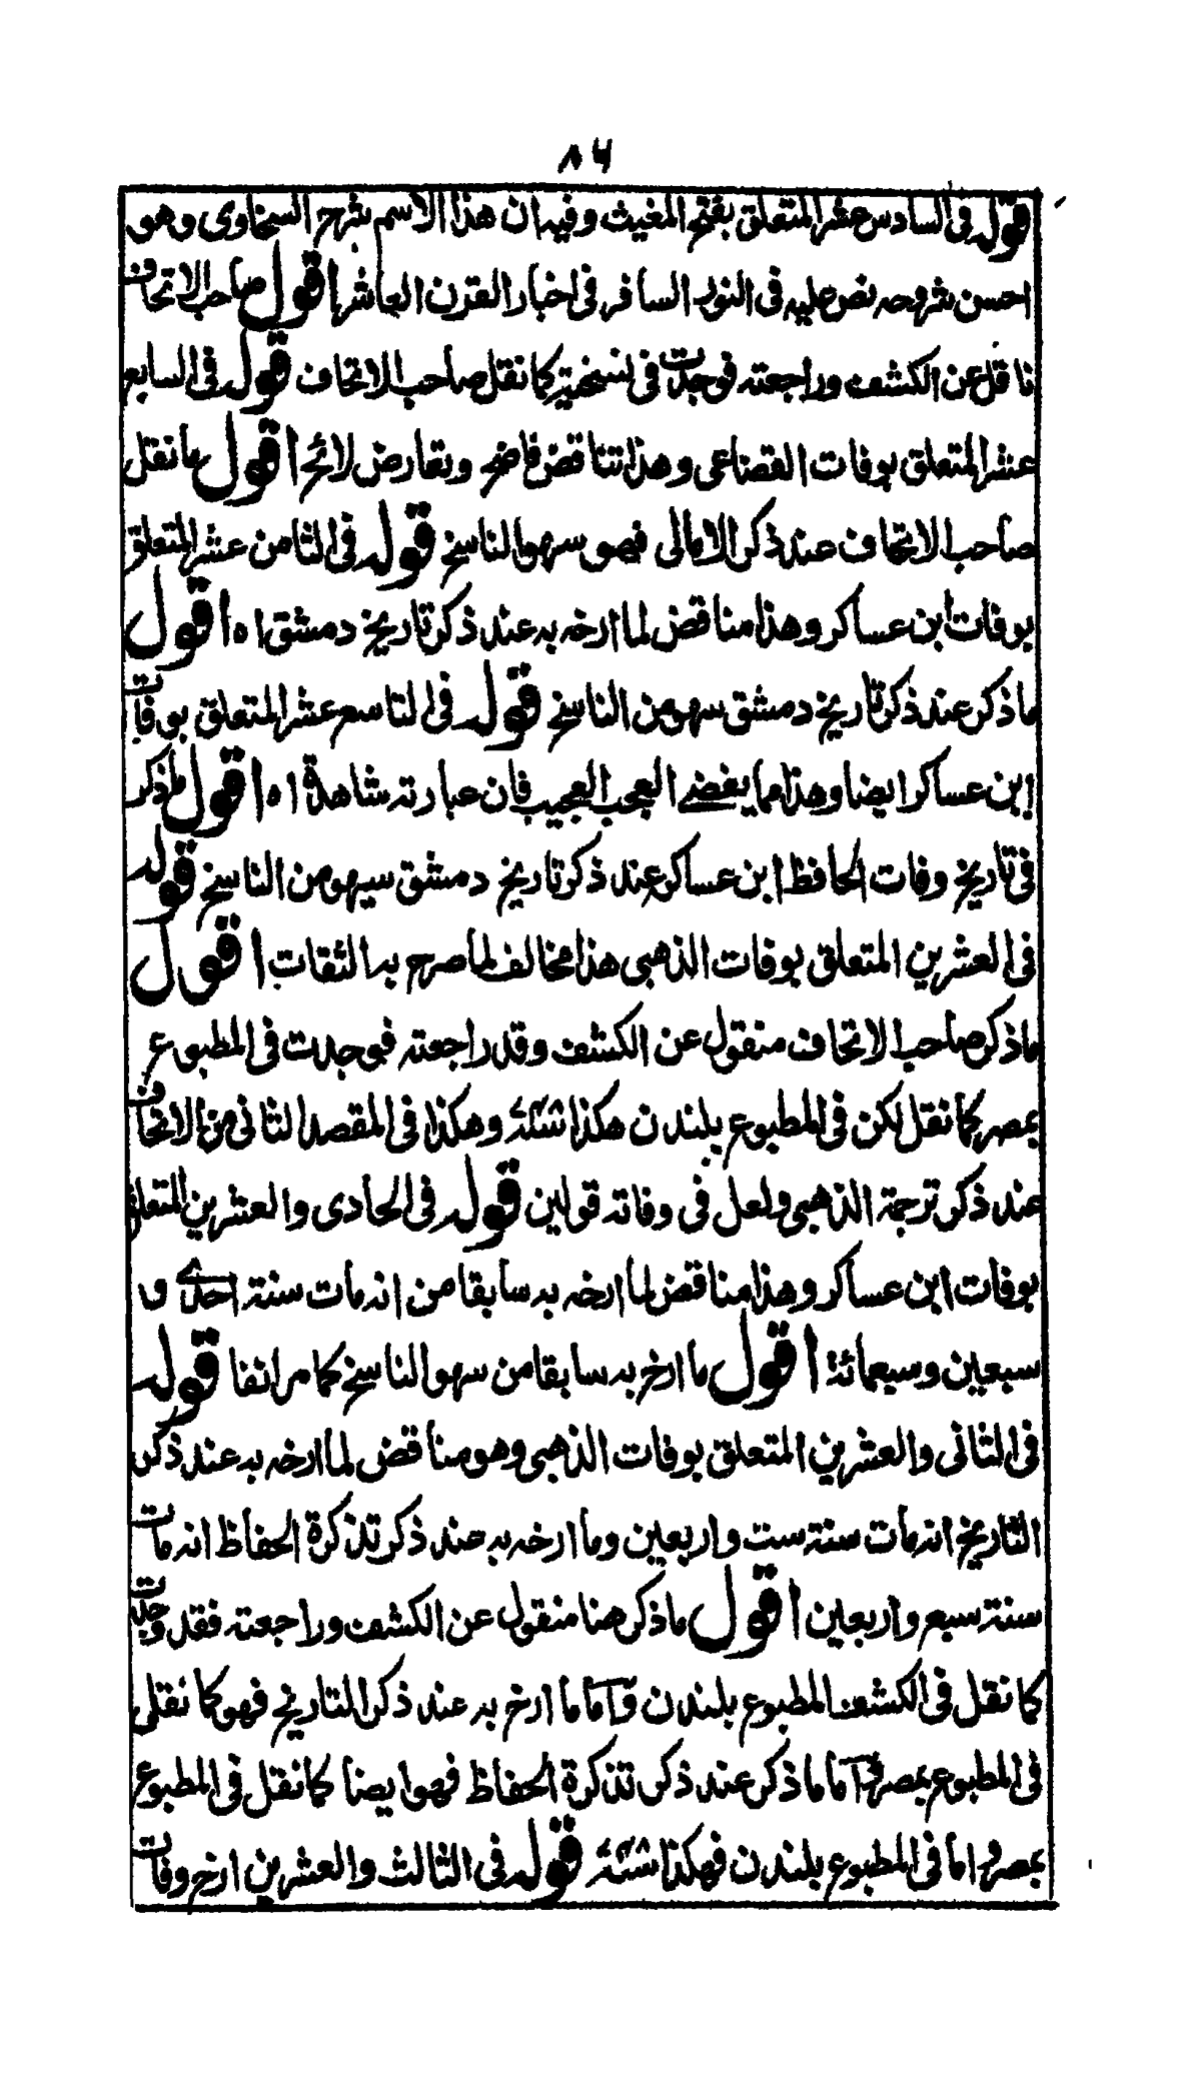 ٨٦
قوله فى السادس عشر المتعلق بفتح المغيث وفيه ان هذا الاسم شرح السخاوى وهو
احسن شروحه نص عليه فى النور السافر فى اخبار القرن العاشر اقول صاحب الاتحاف
ناقل عن الكشف وراجعته فوجدت فى نسخته كما نقل صاحب الاتحاف قوله فى السابع
عشر المتعلق بوفات القضاعى وهذا تناقض فاضح وتعارض لائح اقول ما نقل
صاحب الاتحاف عند ذكر الامالى فهو سهو الناسخ قوله فى الثامن عشر المتعلق
بوفات ابن عساكر وهذا مناقض لما ارخه به عند ذكر تاريخ دمشق اه اقول
ما ذكر عند ذكر تاريخ دمشق سهو من الناسخ قوله فى التاسع عشر المتعلق بوفات
ابن عساكر ايضا وهذا مما يفضے العجب العجيب فان عبارته شاهدة اه اقول ما ذكر
فى تاريخ وفات الحافظ ابن عساكر عند ذكر تاريخ دمشق سهو من الناسخ قوله
فى العشرين المتعلق بوفات الذهبى هذا مخالف لما صرح به الثقات اقول
ما ذكر صاحب الاتحاف منقول عن الكشف وقد راجعته فوجدت فى المطبوع
بمصر كما نقل لكن فى المطبوع بلندن هكذا وهكذا فى المقصد الثانى من الاتحاف
عند ذكر ترجمة الذهبى ولعل فى وفاته قولين قوله فى الحادى والعشرين المتعلق
بوفات ابن عساكر وهذا مناقض لما ارخه به سابقا من انه مات سنة احدے و
سبعين وسبعمائة اقول ما ارخ به سابقا من سهو الناسخ كما مر انفا قوله
فى الثانى والعشرين المتعلق بوفات الذهبى وهو مناقض لما ارخه به عند ذكر
التاريخ انه مات سنة ست واربعين وما ارخه به عند ذكر تذكرة الحفاظ انه مات
سنة سبع واربعين اقول ما ذكر هنا منقول عن الكشف وراجعته فقد وجدت
كما نقل فى الكشف المطبوع بلندن وآما ما ارخ به عند ذكر التاريخ فهو كما نقل
فى المطبوع بمصر وآما ما ذكر عند ذكر تذكرة الحفاظ فهو ايضا كما نقل فى المطبوع
بمصر واما فى المطبوع بلندن فهكذا قوله فى الثالث والعشرين ارخ وفات